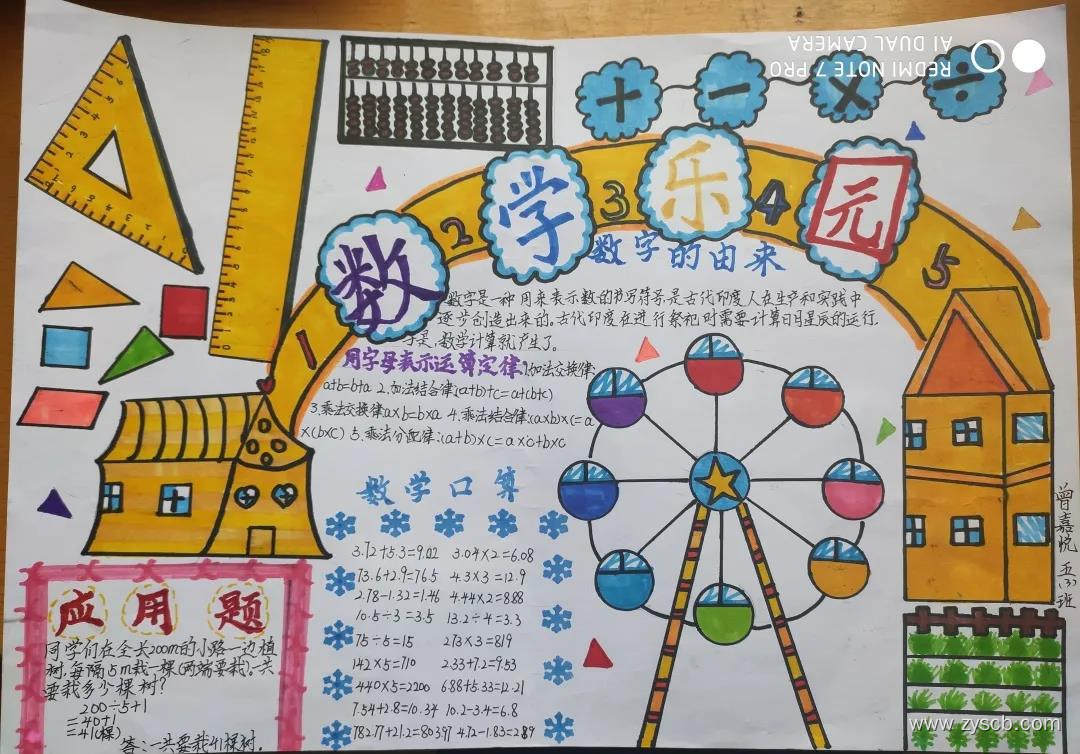 REDMI NOTE 7 PRO
AI DUAL CAMERA
+ - × ÷
数学乐园
1 2 3 4 5
数字的由来
数字是一种用来表示数的书写符号是古代印度人在生产和实践中
逐步创造出来的。古代印度在进行祭祀时需要计算日月星辰的运行.
于是,数学计算就产生了。
用字母表示运算定律:1.加法交换律:
a+b=b+a 2.加法结合律:(a+b)+c=a+(b+c)
3.乘法交换律a×b=b×a 4.乘法结合律:(a×b)×c=a
×(b×c) 5.乘法分配律:(a+b)×c=a×c+b×c
数学口算
3.72+5.3=9.02 3.04×2=6.08
73.6+2.9=76.5 4.3×3=12.9
2.78-1.32=1.46 4.44×2=8.88
10.5÷3=3.5 13.2÷4=3.3
75÷5=15 273×3=819
142×5=710 2.33+7.2=9.53
440×5=2200 6.88+5.33=12.21
7.54+2.8=10.34 10.2-3.4=6.8
782.77+21.2=80397 4.72-1.83=2.89
应用题
同学们在全长200m的小路一边植
树,每隔5m栽一棵(两端要栽),一共
要栽多少棵树?
200÷5+1
=40+1
=41(棵)
答:一共要栽41棵树.
曾嘉悦 五(3)班
www.zyscb.com